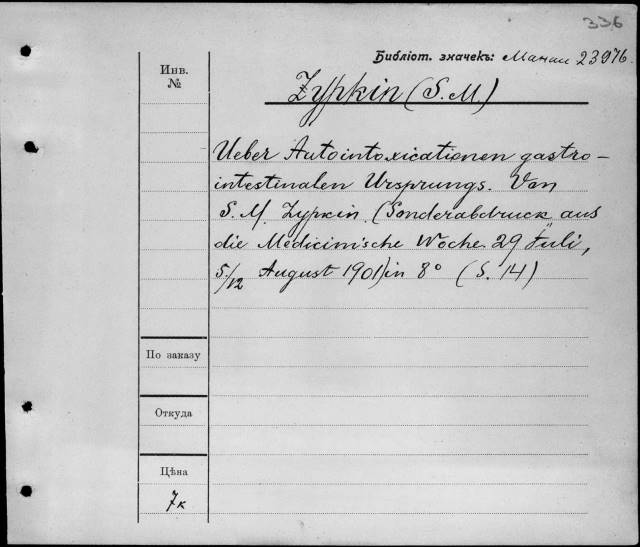 336
Библіот. значекъ: Манаш 23976.
Инв.
№
Zypkin (S. M.)
Ueber Autointoxicationen gastro-
intestinalen Ursprungs. Von
S. M. Zypkin. (Sonderabdruck aus
die Medicinische Woche. 29 Juli,
5/12 August 1901) in 8° (S. 14)
По заказу
Откуда
Цѣна
7к